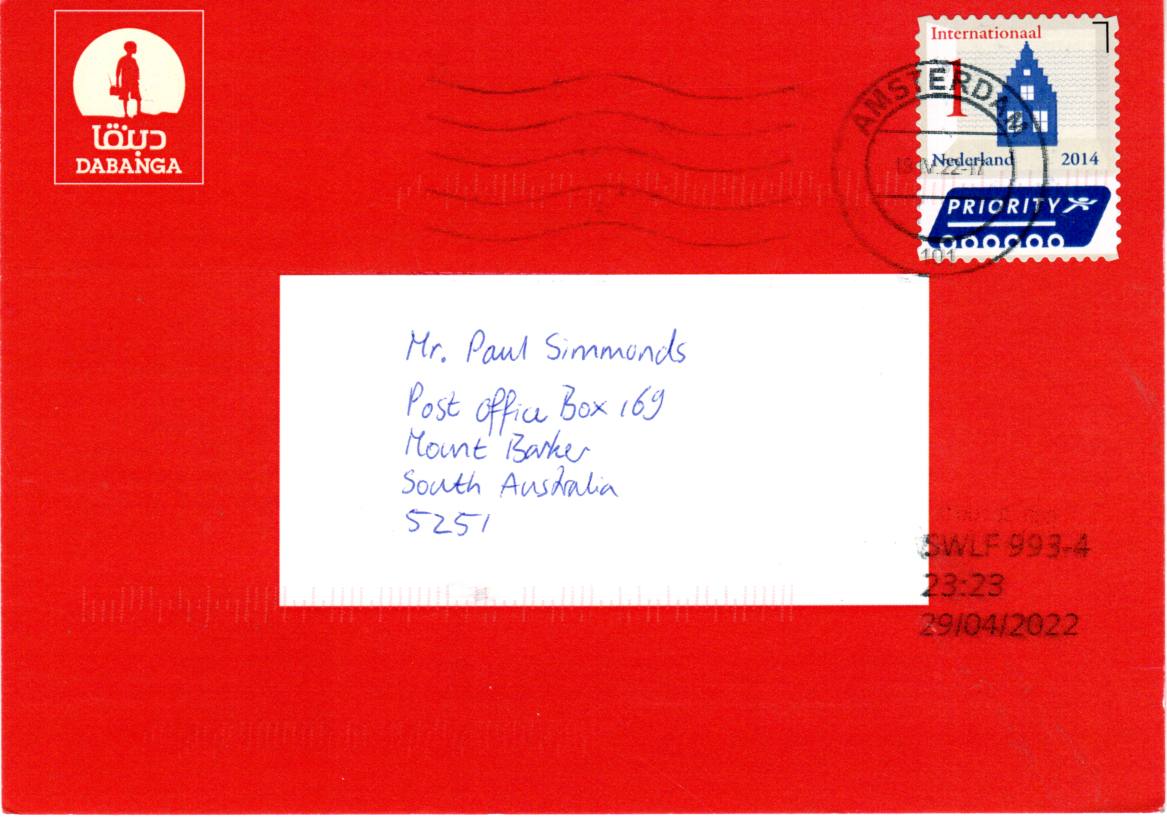 دبنقا
DABANGA
Internationaal
1
AMSTERDAM
Nederland 2014
PRIORITY
101
Mr. Paul Simmonds
Post Office Box 169
Mount Barker
South Australia
5251
SWLF 993-4
23:23
29/04/2022